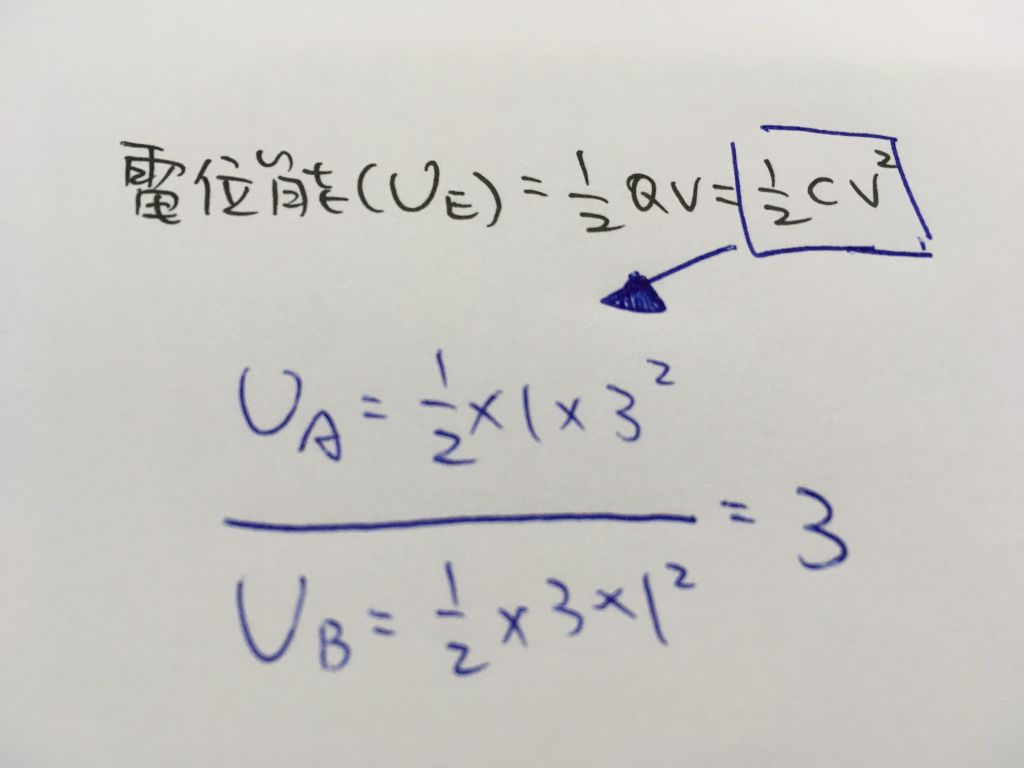 電位能(U_E) = 1/2 QV = 1/2 CV²
U_A = 1/2 × 1 × 3²
= 3
U_B = 1/2 × 3 × 1²